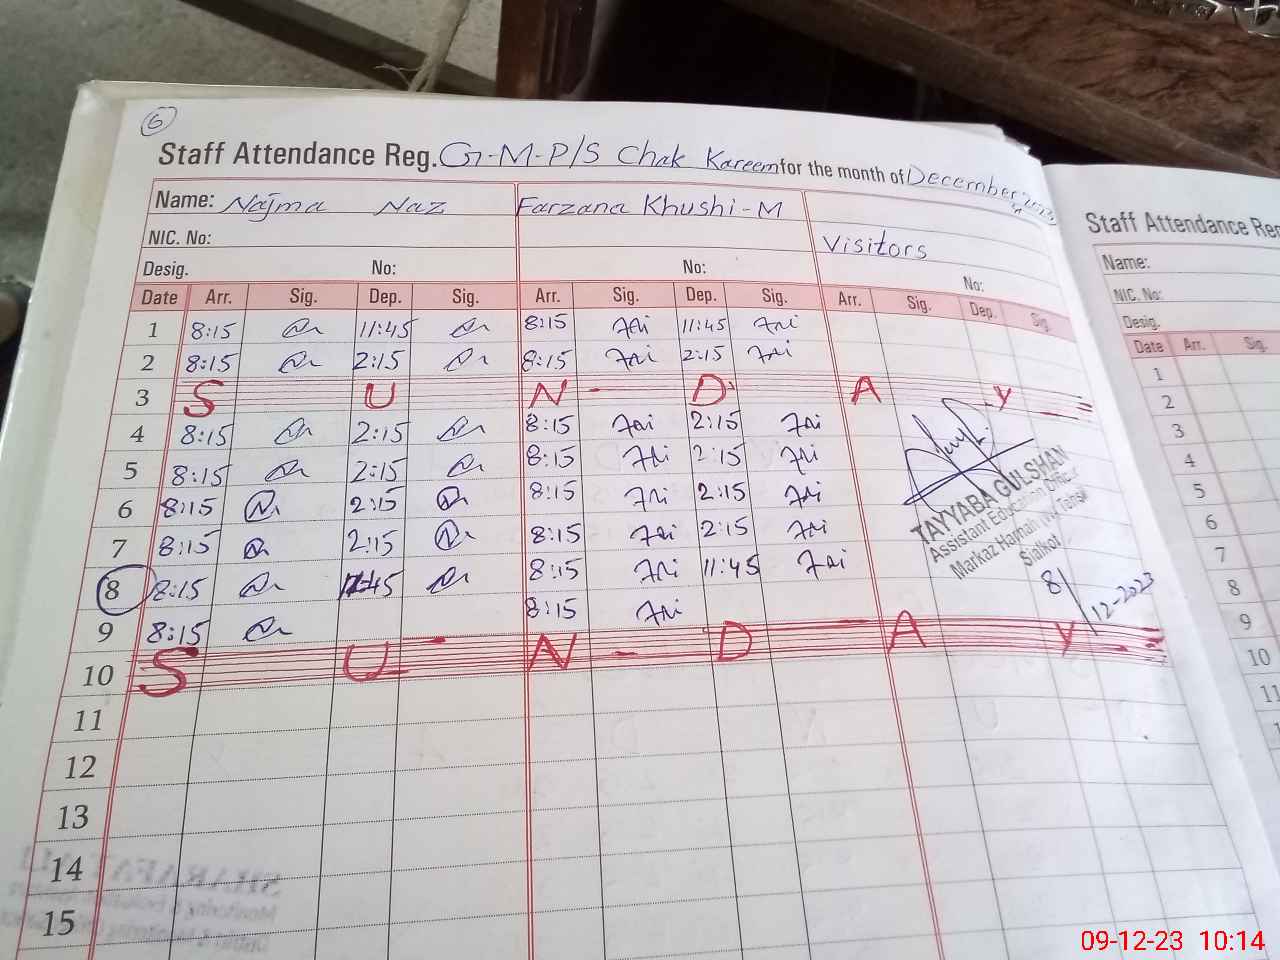 6
Staff Attendance Reg. G-M-P/S Chak Kareem for the month of December 2023
Name: Najma Naz Farzana Khushi-M
NIC. No: Visitors
Desig. No: No: No:
Date Arr. Sig. Dep. Sig. Arr. Sig. Dep. Sig. Arr. Sig. Dep. Sig.
1 8:15 11:45 8:15 11:45
2 8:15 2:15 8:15 2:15
3 S U N - D A Y
4 8:15 2:15 8:15 2:15
5 8:15 2:15 8:15 2:15
6 8:15 2:15 8:15 2:15
7 8:15 2:15 8:15 2:15
8 8:15 11:45 8:15 11:45
9 8:15 8:15
10 S U N - D A Y
11
12
13
14
15
TAYYABA GULSHAN
Assistant Education Officer
Markaz Tehsil
Sialkot
8/12-2023
Staff Attendance Reg
Name:
NIC. No:
Desig:
Date Arr. Sig.
1
2
3
4
5
6
7
8
9
10
11
09-12-23 10:14